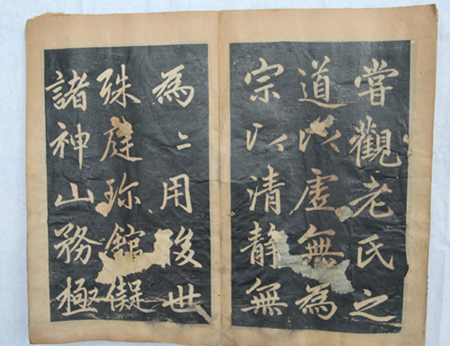 嘗觀老氏之
道以虛無為
宗以清静無
為〻用後世
殊庭珎館儗
諸神山務極